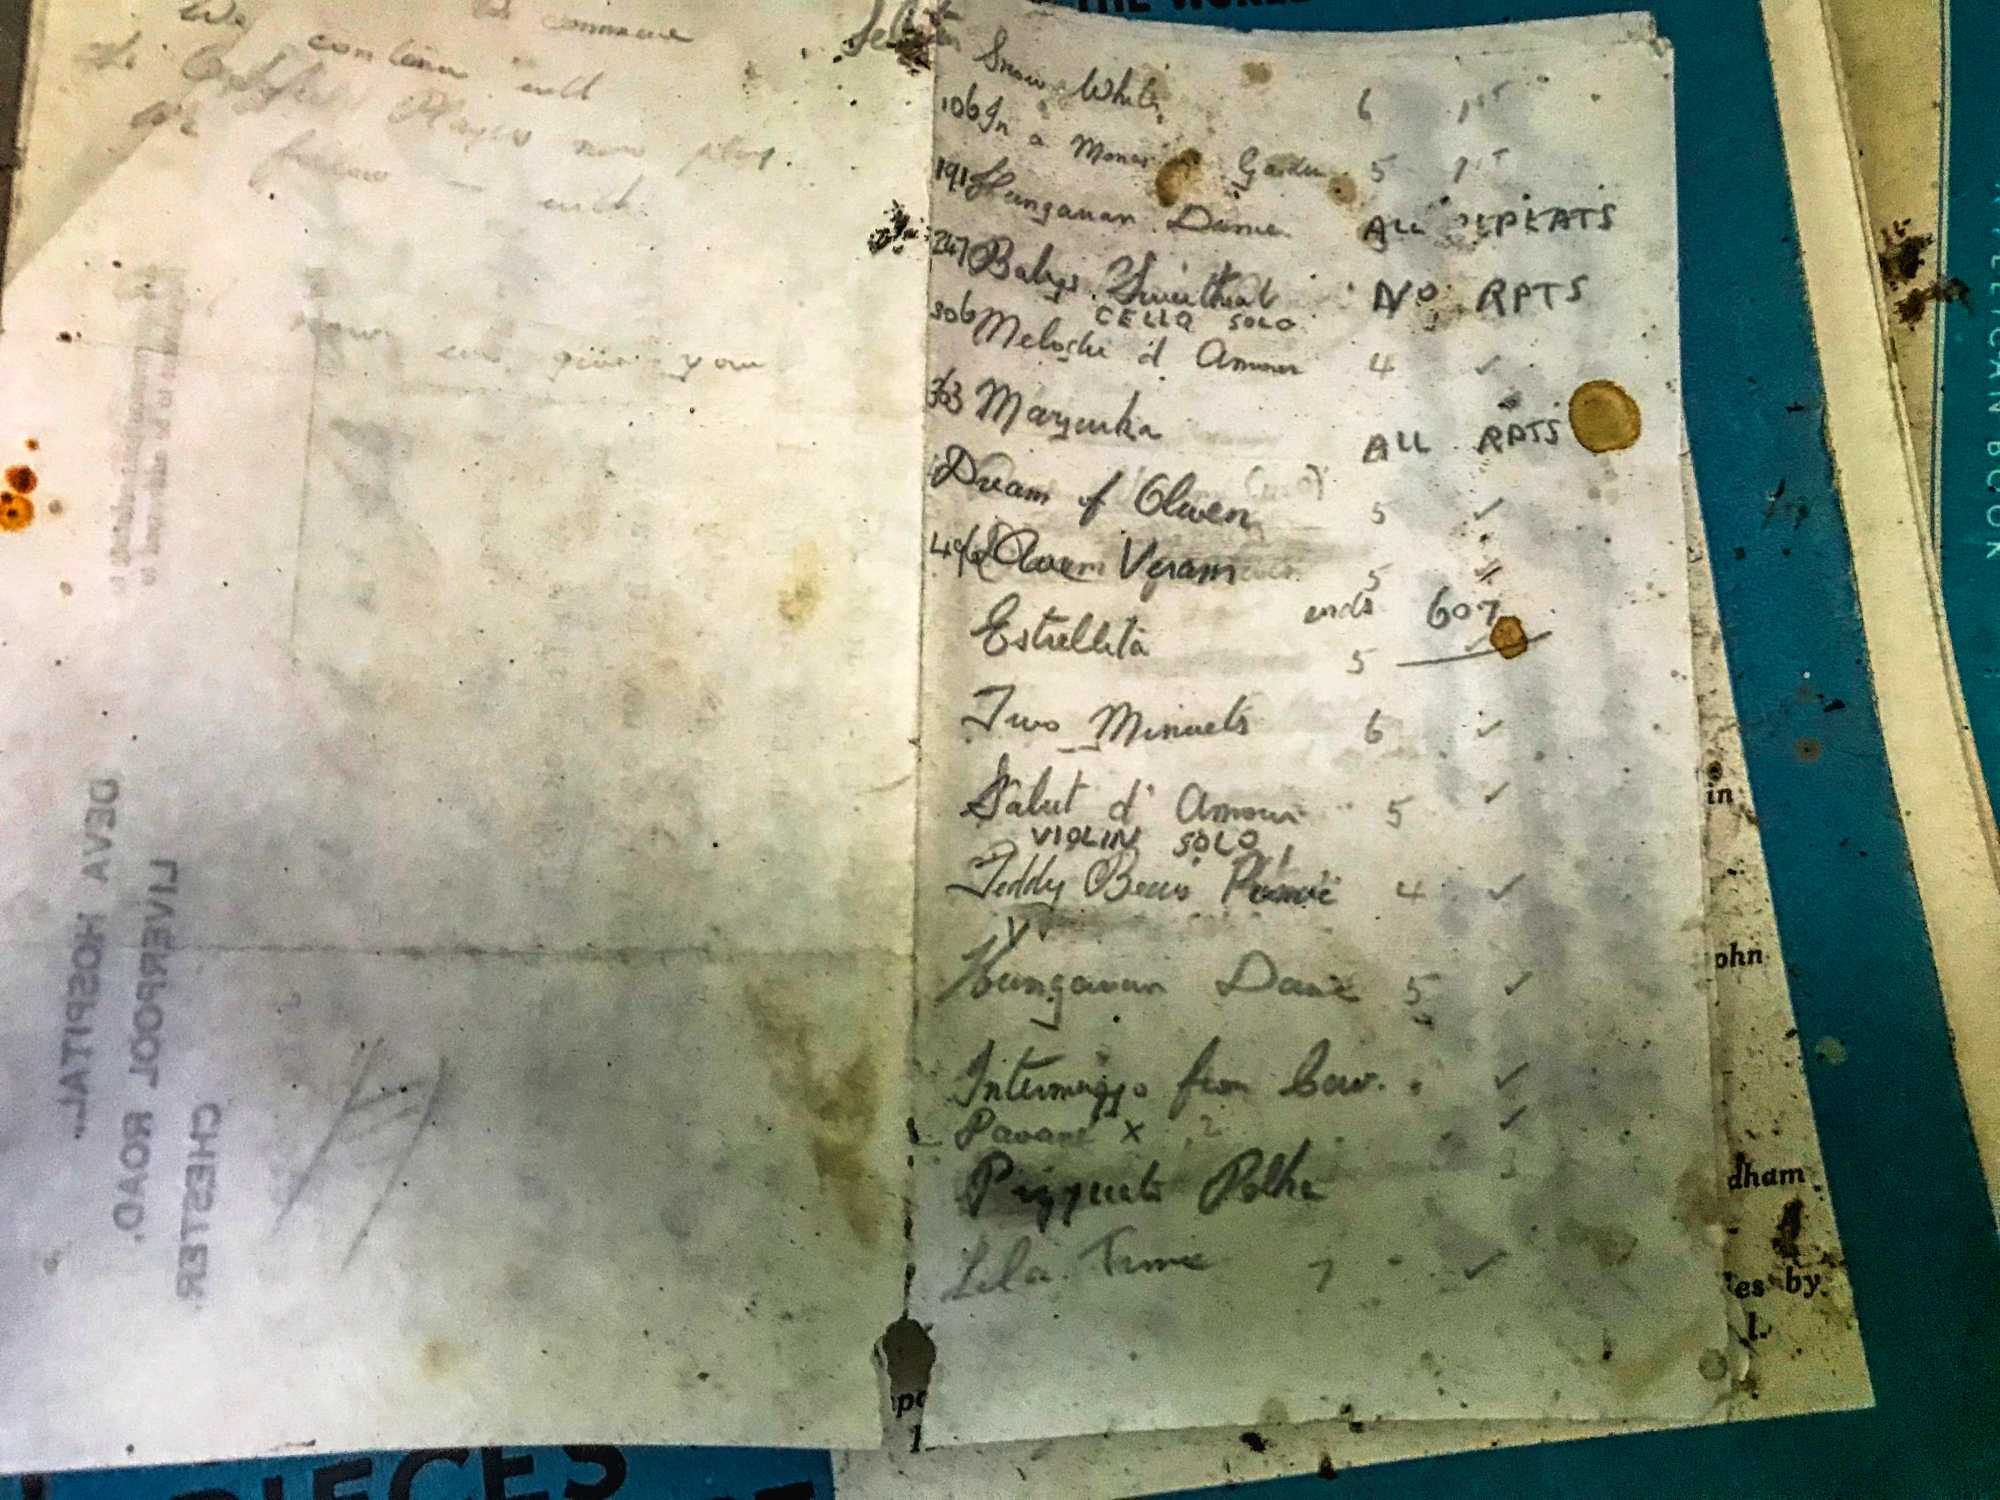 THE WORLD
We commence
continue with
The Players now play.
We follow — with
now we give you
DEVA HOSPITAL.
LIVERPOOL ROAD.
CHESTER
Selection
Snow White 6 1ST
106 In a Monas Garden 5 1ST
191 Hungarian Dance ALL REPEATS
247 Babys Sweetheart NO RPTS
CELLO SOLO
306 Melodie d Amour 4 ✓
363 Maryinka ALL RPTS
Dream of Olwen 5 ✓
Avem Veram 5 ✓
ends 607
Estrellita 5 ✓
Two Minuets 6 ✓
Salut d' Amour 5 ✓
VIOLIN SOLO
Teddy Bears Picnic 4 ✓
Hungarian Dance 5 ✓
Intermezzo from Cav. ✓
Pavane x 2 ✓
Pizzicato Polka
Lilac Time 7 ✓
A PELICAN BOOK
in
ohn
dham
es by
l.
PIECES